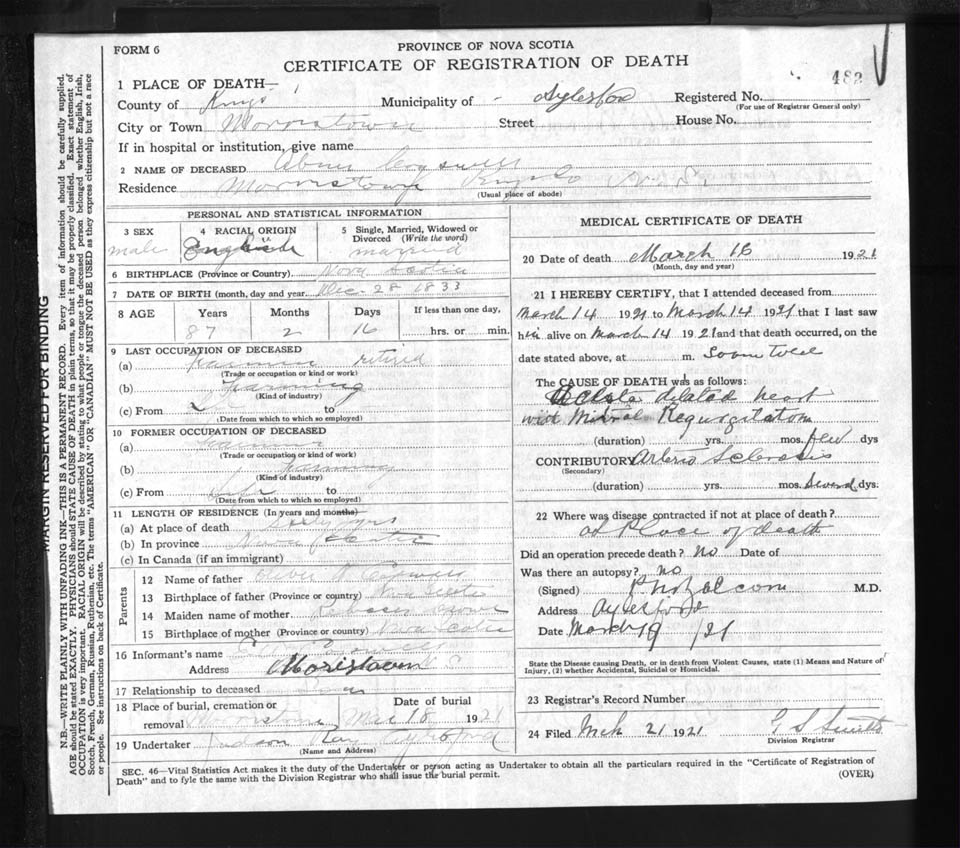 FORM 6
PROVINCE OF NOVA SCOTIA
CERTIFICATE OF REGISTRATION OF DEATH
482
1 PLACE OF DEATH—
County of Kings Municipality of Aylesford Registered No.
(For use of Registrar General only)
City or Town Morristown Street House No.
If in hospital or institution, give name
2 NAME OF DECEASED Abner Cogswell
Residence Morristown Kings Co N.S.
(Usual place of abode)
PERSONAL AND STATISTICAL INFORMATION
3 SEX male
4 RACIAL ORIGIN English
5 Single, Married, Widowed or Divorced (Write the word) married
6 BIRTHPLACE (Province or Country) Nova Scotia
7 DATE OF BIRTH (month, day and year) Dec. 28 1833
8 AGE Years Months Days If less than one day,
87 2 16 hrs. or min.
9 LAST OCCUPATION OF DECEASED
(a) Farmer retired
(Trade or occupation or kind of work)
(b) Farming
(Kind of industry)
(c) From to
(Date from which to which so employed)
10 FORMER OCCUPATION OF DECEASED
(a) Farmer
(Trade or occupation or kind of work)
(b) Farming
(Kind of industry)
(c) From to
(Date from which to which so employed)
11 LENGTH OF RESIDENCE (In years and months)
(a) At place of death Sixty yrs
(b) In province Nova Scotia
(c) In Canada (if an immigrant)
Parents
12 Name of father Oliver Cogswell
13 Birthplace of father (Province or country) Nova Scotia
14 Maiden name of mother Rebecca
15 Birthplace of mother (Province or country) Nova Scotia
16 Informant's name Cogswell
Address Morristown N S
17 Relationship to deceased
18 Place of burial, cremation or removal Morristown Date of burial Mar 18 1921
19 Undertaker Judson Aylesford
(Name and Address)
MEDICAL CERTIFICATE OF DEATH
20 Date of death March 16 1921
(Month, day and year)
21 I HEREBY CERTIFY, that I attended deceased from
March 14 1921 to March 14 1921 that I last saw
him alive on March 14 1921 and that death occurred, on the
date stated above, at m.
The CAUSE OF DEATH was as follows:
Acute dilated heart
with Mitral Regurgitation
(duration) yrs. mos. few dys
CONTRIBUTORY Arterio Sclerosis
(Secondary)
(duration) yrs. mos. Several dys.
22 Where was disease contracted if not at place of death?
at Place of death
Did an operation precede death? No Date of
Was there an autopsy? no
(Signed) M.D.
Address Aylesford
Date March 19 /21
State the Disease causing Death, or in death from Violent Causes, state (1) Means and Nature of
Injury, (2) whether Accidental, Suicidal or Homicidal.
23 Registrar's Record Number
24 Filed Mch 21 1921 G S Smith
Division Registrar
SEC. 46—Vital Statistics Act makes it the duty of the Undertaker or person acting as Undertaker to obtain all the particulars required in the "Certificate of Registration of
Death" and to fyle the same with the Division Registrar who shall issue the burial permit.
(OVER)
MARGIN RESERVED FOR BINDING
N.B.—WRITE PLAINLY WITH UNFADING INK—THIS IS A PERMANENT RECORD. Every item of information should be carefully supplied.
AGE should be stated EXACTLY. PHYSICIANS should STATE CAUSE OF DEATH in plain terms, so that it may be properly classified. Exact statement of
OCCUPATION is very important. RACIAL ORIGIN will be described by stating to what people or tongue the deceased person belonged, whether English, Irish,
Scotch, French, German, Russian, Ruthenian, etc. The terms "AMERICAN" OR "CANADIAN" MUST NOT BE USED as they express citizenship but not a race
or people. See instructions on back of Certificate.